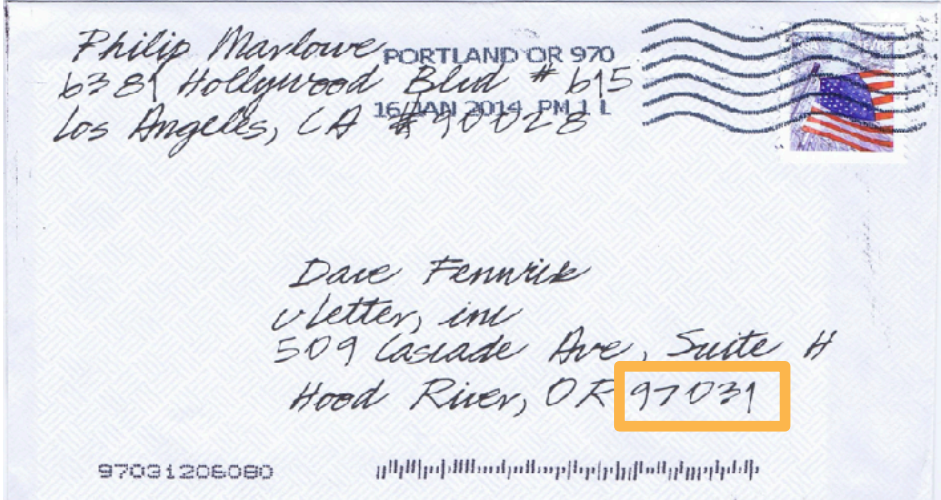 Philip Marlowe
6381 Hollywood Blvd # 615
Los Angeles, CA # 90028
PORTLAND OR 970
16 JAN 2014 PM 1 L
Dave Fennwick
vletter, inc
509 Cascade Ave, Suite H
Hood River, OR 97031
97031206080